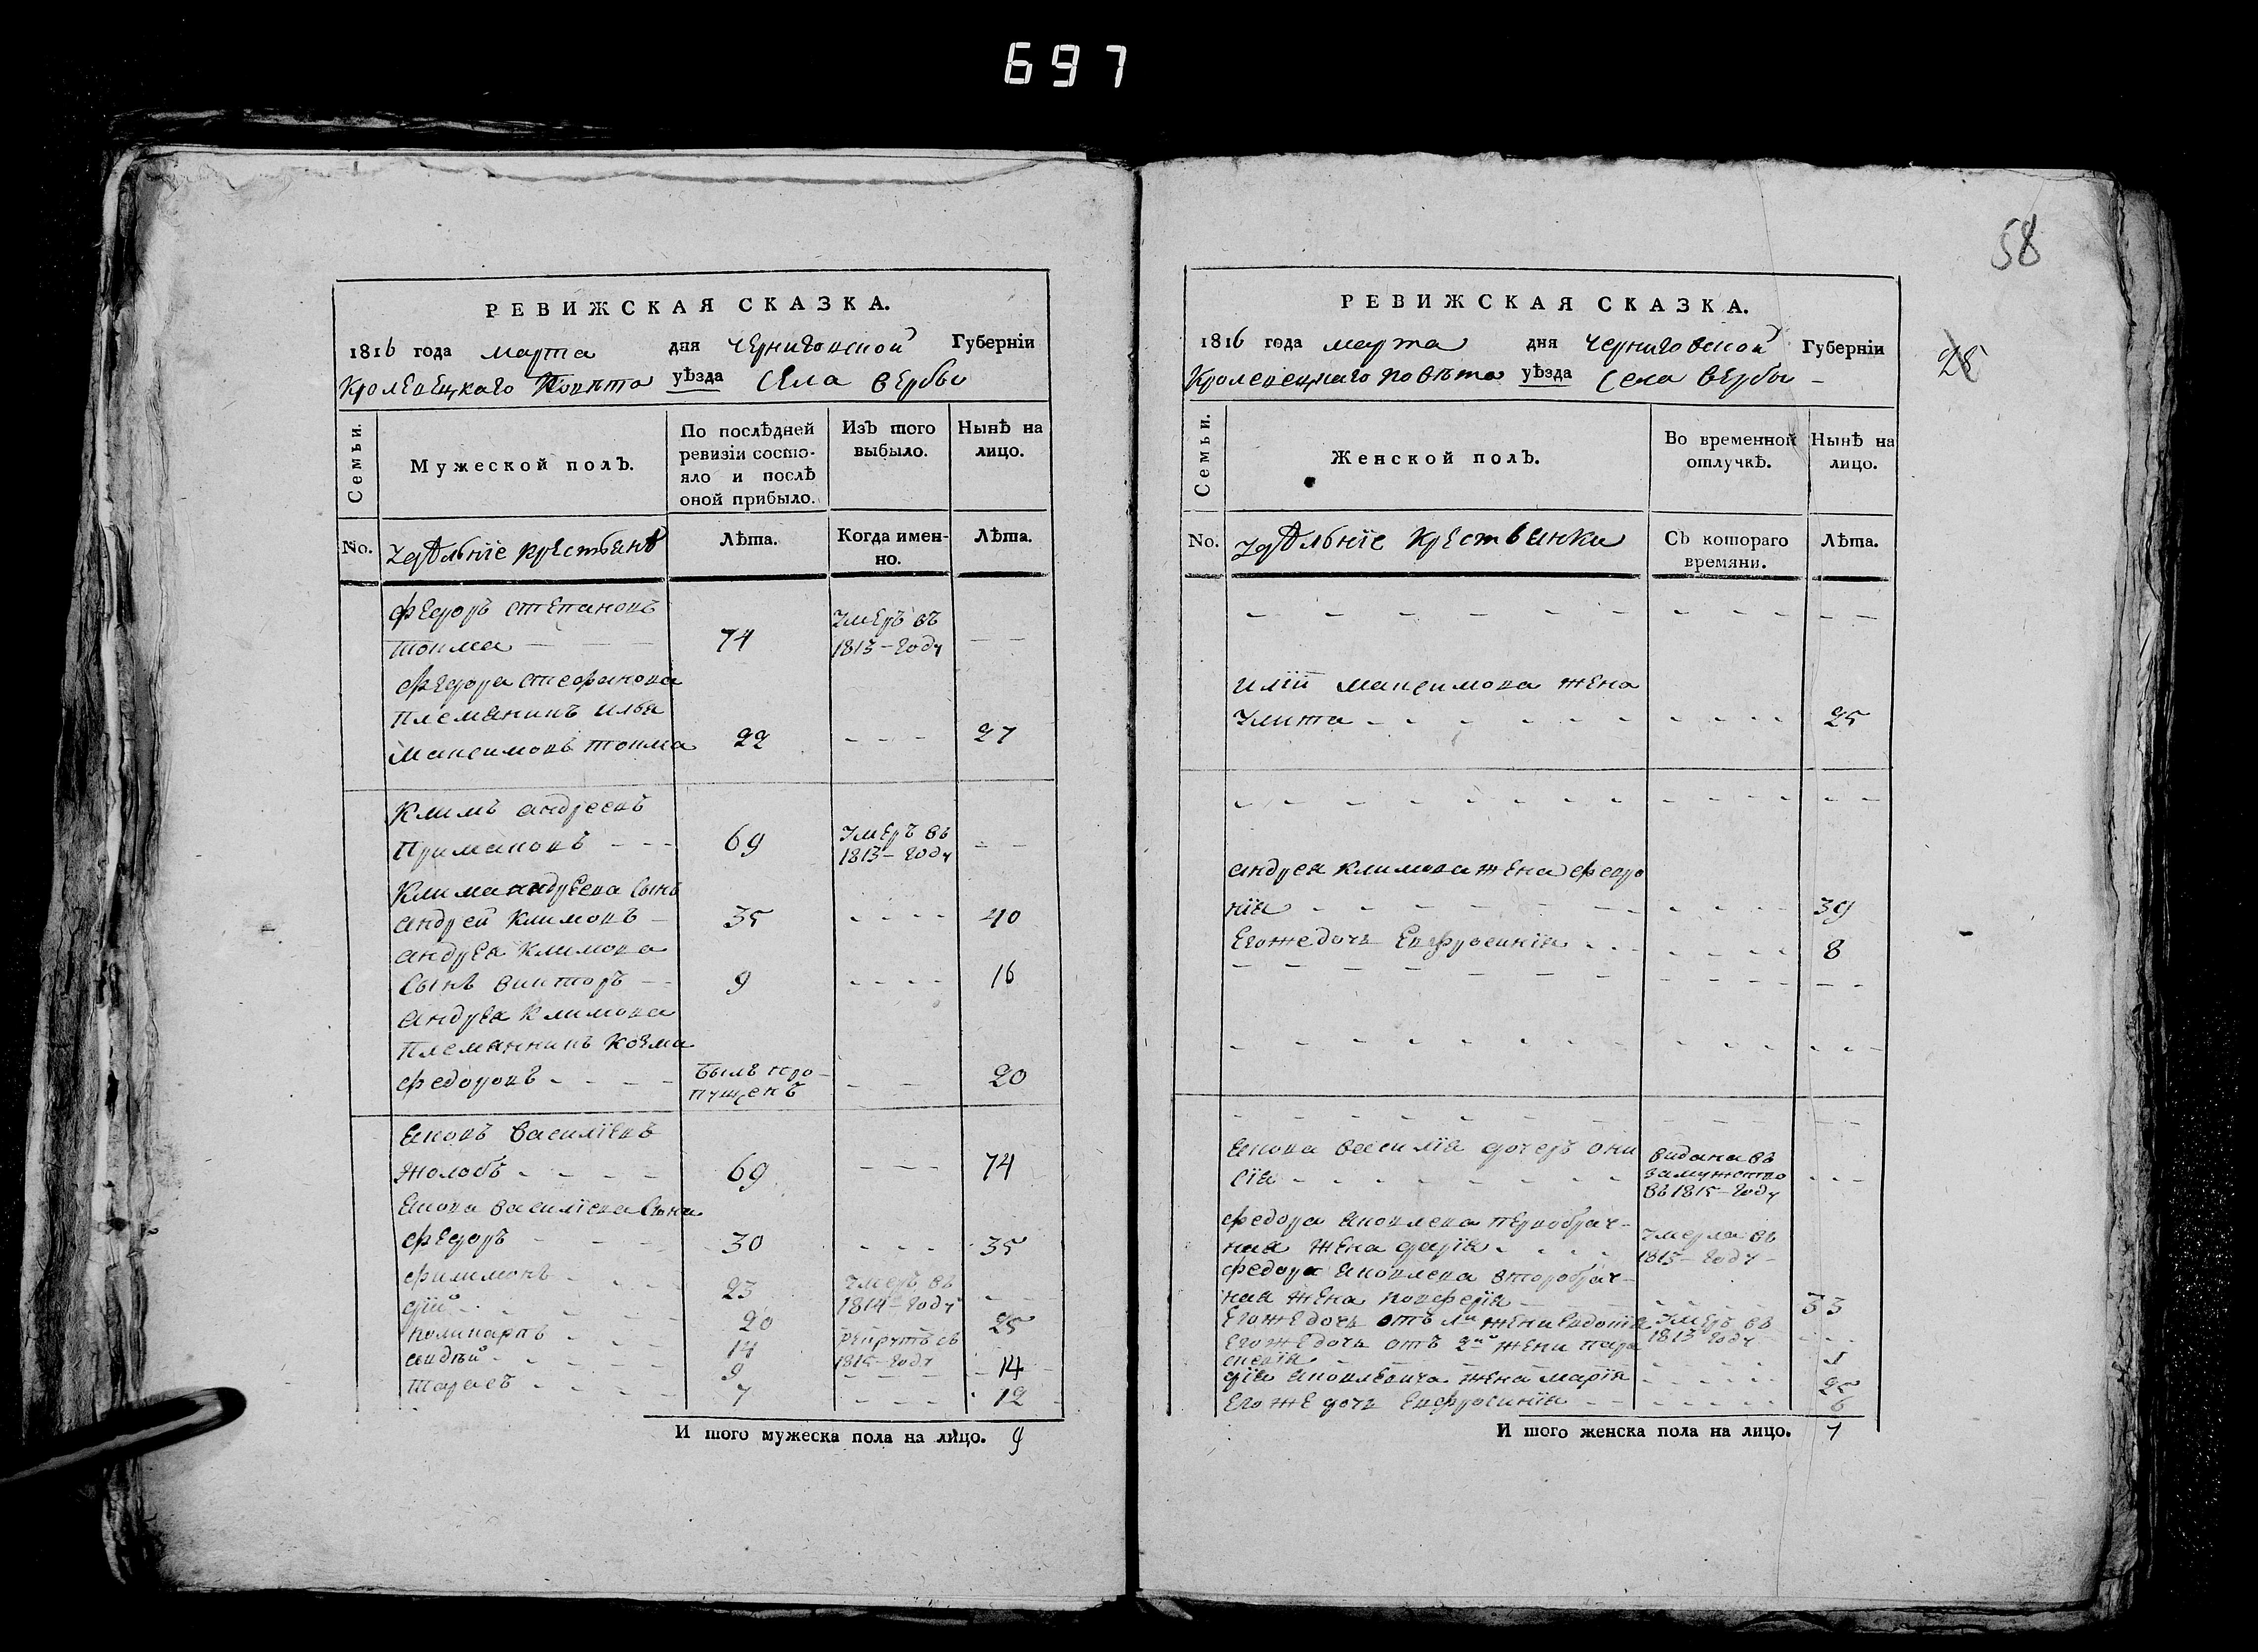 697
РЕВИЖСКАЯ СКАЗКА.
1816 года марта дня Черниговской Губерніи
Кролевецкаго Повѣта уѣзда Села Вербы
Семьи.
Мужеской полъ.
По послѣдней ревизіи состо-
яло и послѣ
оной прибыло.
Изъ того
выбыло.
Нынѣ на
лицо.
No.
удѣльніе крестьянѣ
Лѣта.
Когда имен-
но.
Лѣта.
Федоръ Степановъ
Товма 74 Умеръ въ
1813-году
Федора Стефанова
Племянникъ Илья
Максимовъ Товма 22 27
Климъ Андреевъ
Примаковъ 69 Умеръ въ
1813-году
Клима Андреева Сынъ
Андрей Климовъ 35 40
Андрея Климова
Сынъ Викторъ 9 16
Андрея Климова
Племянникъ Козма
Федоровъ Былъ про-
пущенъ 20
Яковъ Василіевъ
Жолобъ 69 74
Якова Василіева Сына
Федоръ 30 35
Филимонъ 23 Умеръ въ
1814-году
20 25
Поликарпъ 14 Рекрутъ съ
1815-году
9 14
Тарасъ 7 12
И того мужеска пола на лицо. 9
58
28
РЕВИЖСКАЯ СКАЗКА.
1816 года марта дня Черниговской Губерніи
Кролевецкаго Повѣта уѣзда Села Вербы
Семьи.
Женской полъ.
Во временной
отлучкѣ.
Нынѣ на
лицо.
No.
удѣльніе Крестьянки
Съ котораго
времяни.
Лѣта.
Иліи Максимова жена
Улита 25
Андрея Климова жена Февро
нія 39
Егоже дочь Евфросинія 8
Якова Василія дочеръ Они
сія видана въ
замужство
въ 1815-году
Федора Яковлева первобрач-
ная жена Дарія Умерла въ
1813-году
Федора Яковлева второбрач-
ная жена 33
Егоже дочь отъ 1й жени Евдотія Умеръ въ
1813 году
Егоже дочь отъ 2й жени Пара
скевія
Яковлевича жена Марія 25
Егоже дочь Евфросинія 6
И того женска пола на лицо. 7